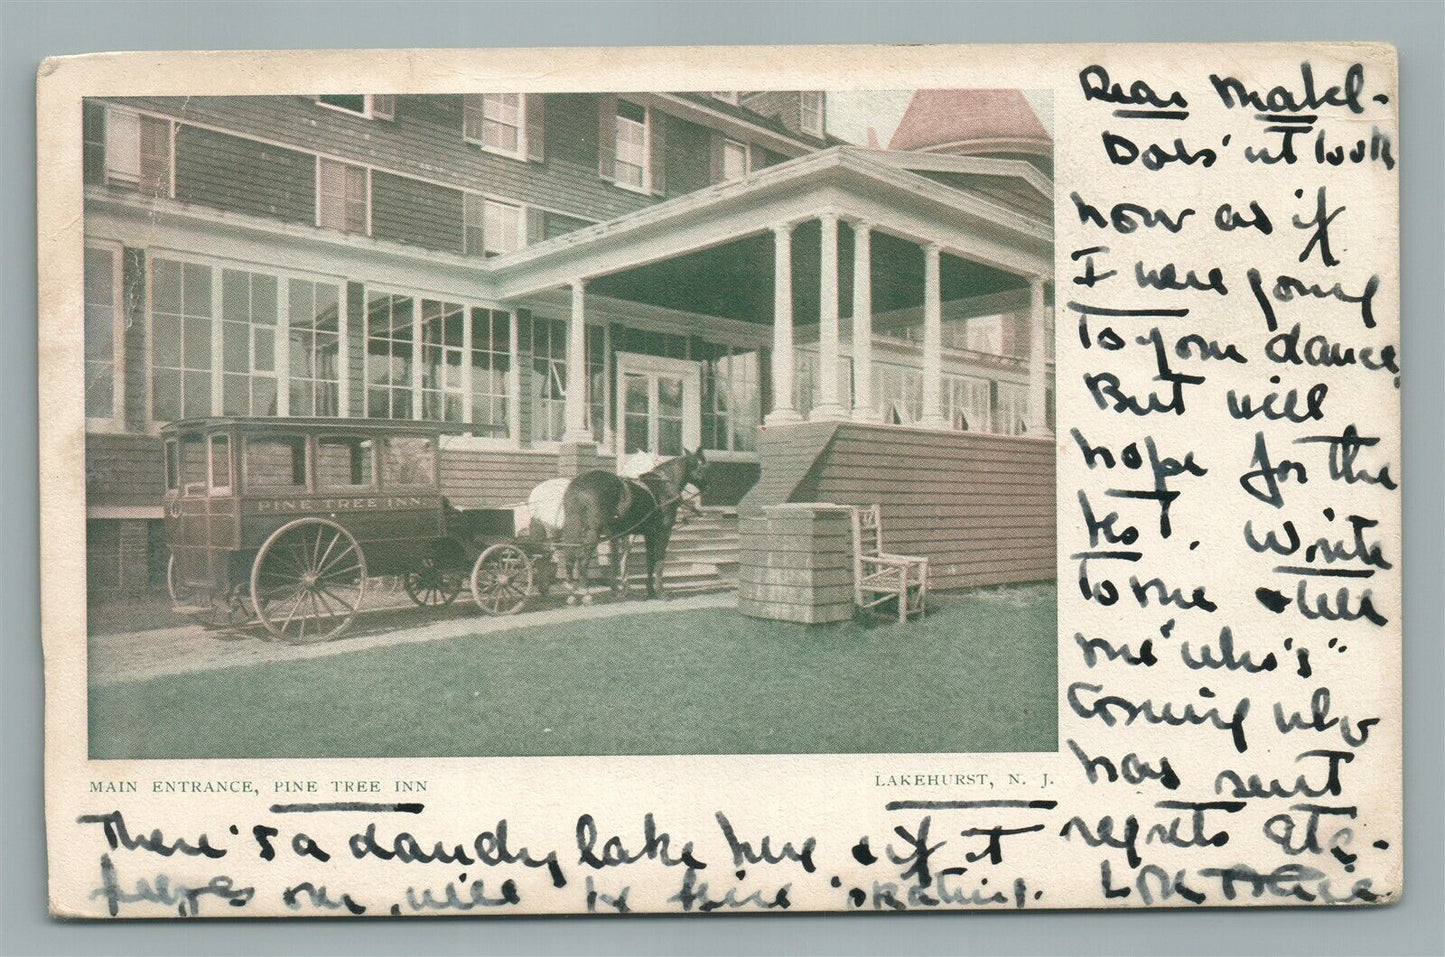 Dear Mabel -
Does'nt look
now as if
I were going
to your dance.
But will
hope for the
best. Write
to me & tell
me "who's"
coming who
has sent
regrets etc. -
PINE TREE INN
MAIN ENTRANCE, PINE TREE INN
LAKEHURST, N. J.
There's a dandy lake here & if it
freezes over, will be fine skating.